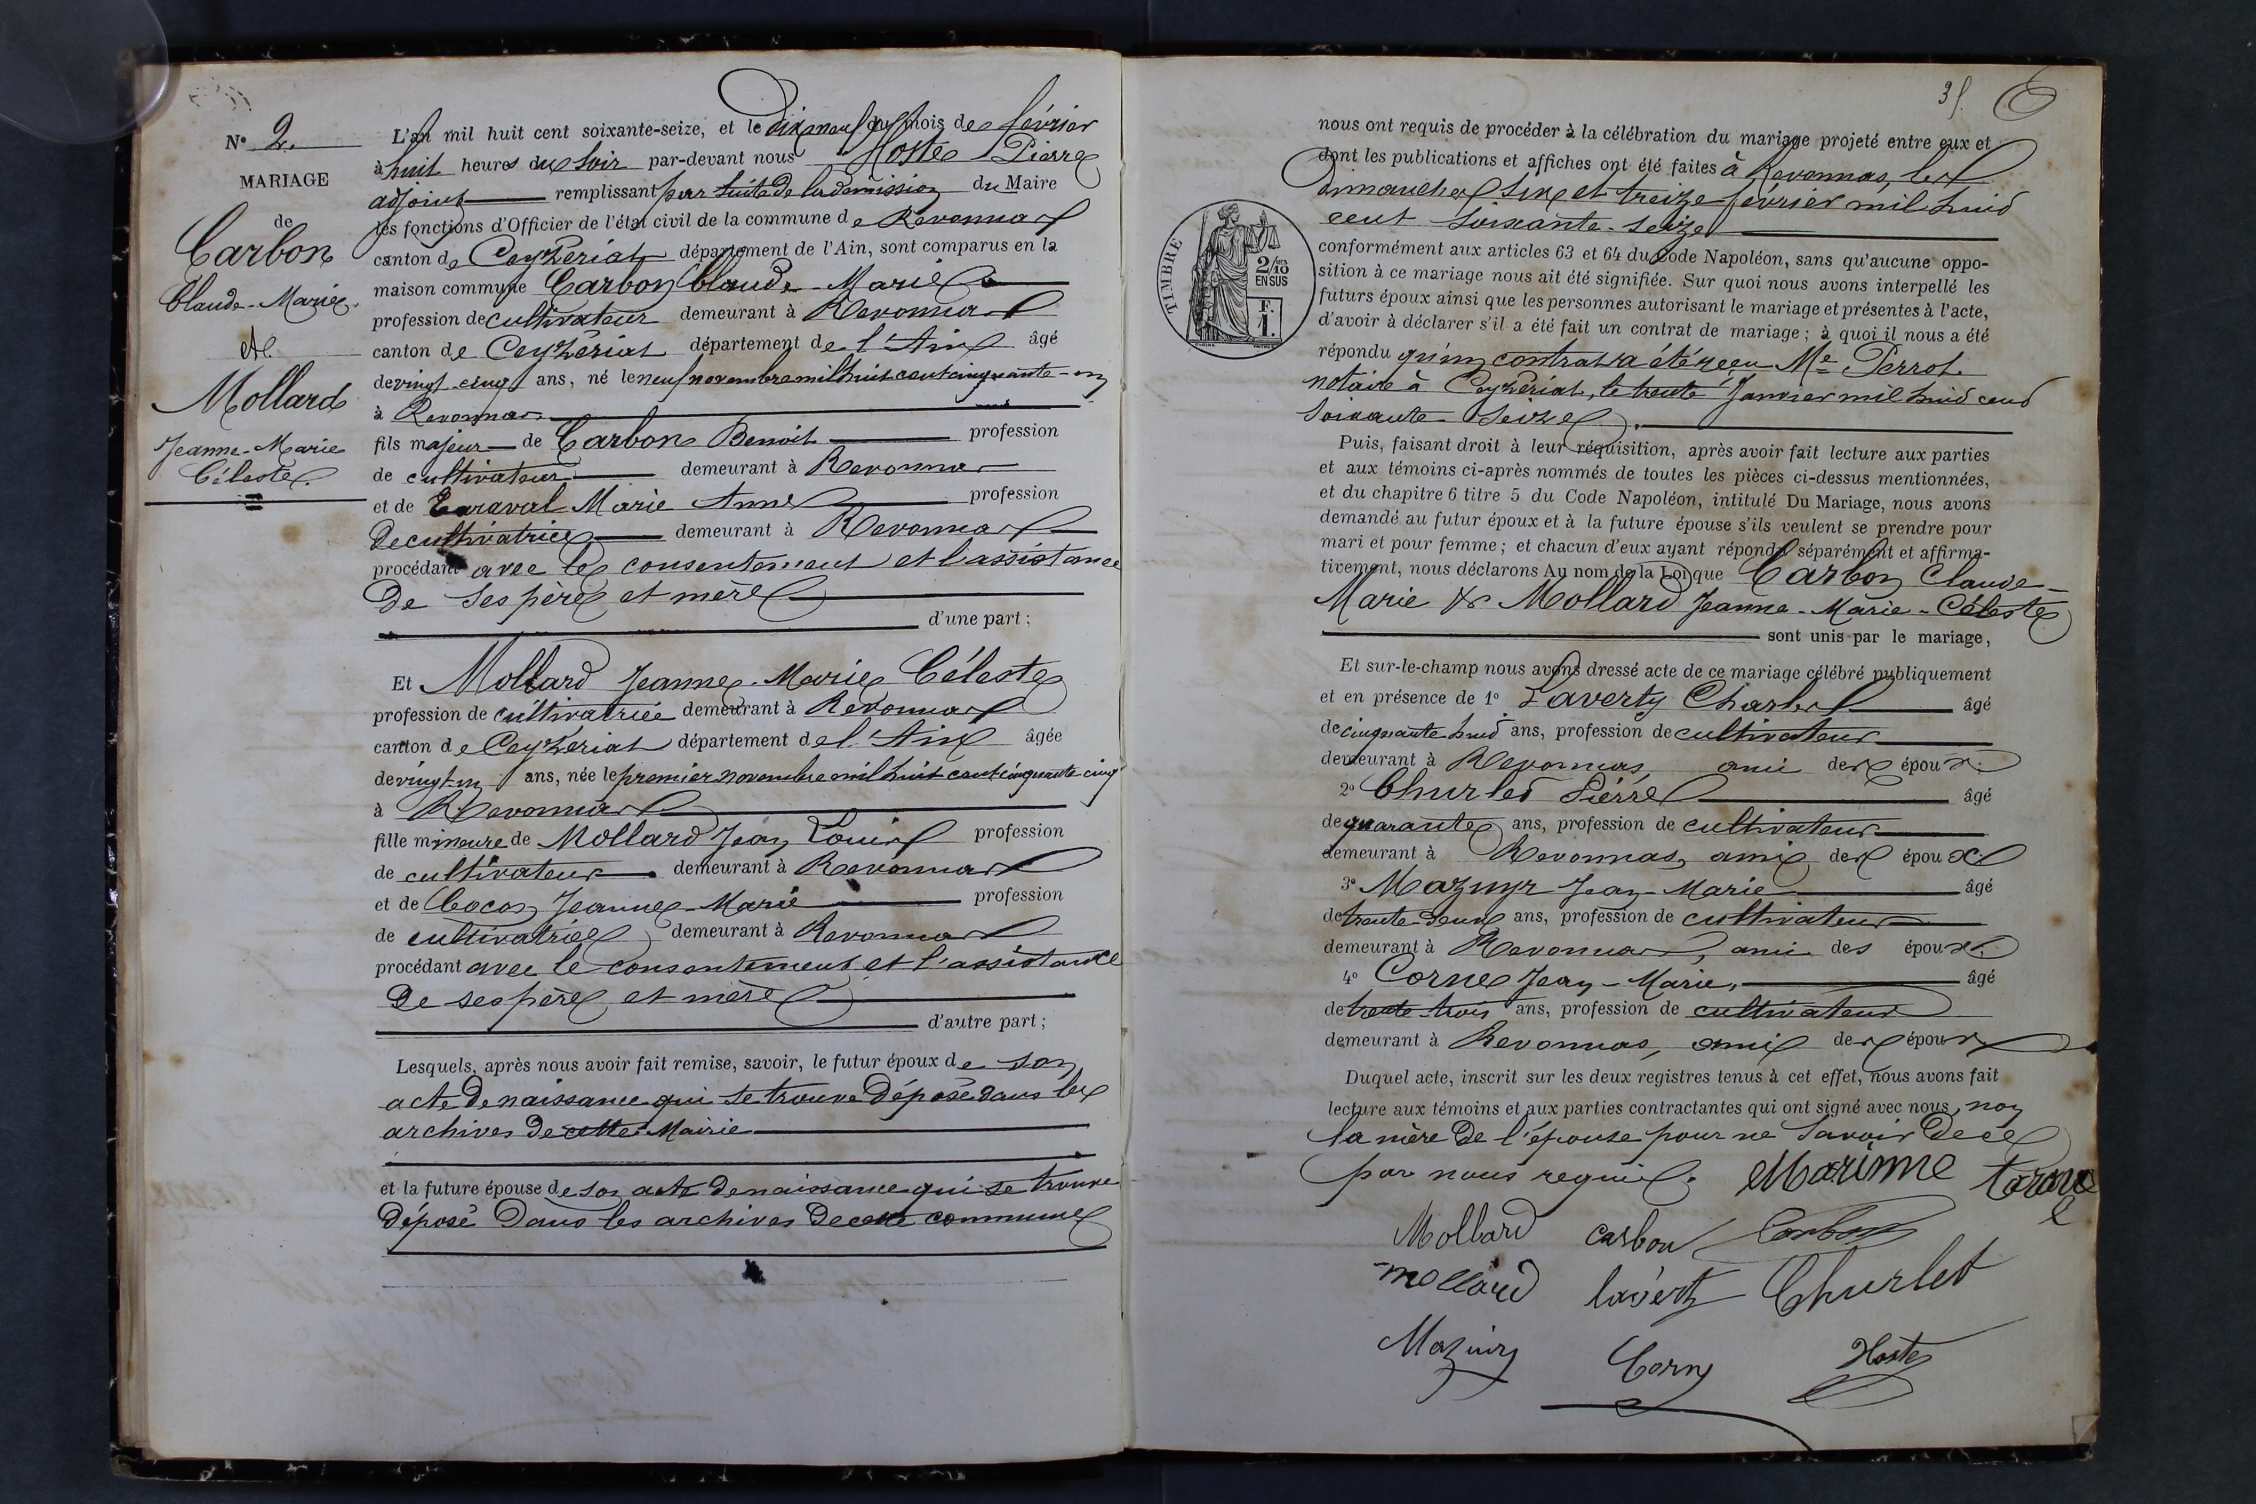 N° 2.
MARIAGE
de
Carbon
Claude-Marie.
et
Mollard
Jeanne-Marie
Céleste
L'an mil huit cent soixante-seize, et le dix neuf du mois de février
à huit heures du soir par-devant nous Hoste Pierre
adjoint remplissant par suite de la démission du Maire
les fonctions d'Officier de l'état civil de la commune de Revonnas
canton de Ceyzériat département de l'Ain, sont comparus en la
maison commune Carbon Claude-Marie
profession de cultivateur demeurant à Revonnas
canton de Ceyzériat département de l'Ain âgé
de vingt-cinq ans, né le neuf novembre mil huit cent cinquante-un
à Revonnas
fils majeur de Carbon Benoit profession
de cultivateur demeurant à Revonnas
et de Taraval Marie Anne profession
de cultivatrice demeurant à Revonnas
procédant avec le consentement et l'assistance
de ses père et mère
d'une part;
Et Mollard Jeanne-Marie Céleste
profession de cultivatrice demeurant à Revonnas
canton de Ceyzeriat département de l'Ain âgée
de vingt-un ans, née le premier novembre mil huit cent cinquante cinq
à Revonnas
fille mineure de Mollard Jean Louis profession
de cultivateur demeurant à Revonnas
et de Cocon Jeanne-Marie profession
de cultivatrice demeurant à Revonnas
procédant avec le consentement et l'assistance
de ses père et mère
d'autre part;
Lesquels, après nous avoir fait remise, savoir, le futur époux de son
acte de naissance qui se trouve déposé dans les
archives de cette Mairie
et la future épouse de son acte de naissance qui se trouve
déposé dans les archives de cette commune
TIMBRE
2/10
EN SUS
F.
1.
nous ont requis de procéder à la célébration du mariage projeté entre eux et
dont les publications et affiches ont été faites à Revonnas, les
dimanches six et treize février mil huit
cent soixante-seize
conformément aux articles 63 et 64 du Code Napoléon, sans qu'aucune oppo-
sition à ce mariage nous ait été signifiée. Sur quoi nous avons interpellé les
futurs époux ainsi que les personnes autorisant le mariage et présentes à l'acte,
d'avoir à déclarer s'il a été fait un contrat de mariage; à quoi il nous a été
répondu qu'un contrat a été reçu Me Perrot
notaire à Ceyzériat, le trente Janvier mil huit cent
soixante seize.
Puis, faisant droit à leur réquisition, après avoir fait lecture aux parties
et aux témoins ci-après nommés de toutes les pièces ci-dessus mentionnées,
et du chapitre 6 titre 5 du Code Napoléon, intitulé Du Mariage, nous avons
demandé au futur époux et à la future épouse s'ils veulent se prendre pour
mari et pour femme; et chacun d'eux ayant répondu séparément et affirma-
tivement, nous déclarons Au nom de la Loi que Carbon Claude-
Marie & Mollard Jeanne-Marie-Céleste
sont unis par le mariage,
Et sur-le-champ nous avons dressé acte de ce mariage célébré publiquement
et en présence de 1° Laverty Charles âgé
de cinquante huit ans, profession de cultivateur
demeurant à Revonnas, ami des époux.
2° Churlet Pierre âgé
de quarante ans, profession de cultivateur
demeurant à Revonnas, ami des époux
3° Mazuyr Jean-Marie âgé
de trente-deux ans, profession de cultivateur
demeurant à Revonnas, ami des époux.
4° Corne Jean-Marie, âgé
de trente trois ans, profession de cultivateur
demeurant à Revonnas, ami des époux
Duquel acte, inscrit sur les deux registres tenus à cet effet, nous avons fait
lecture aux témoins et aux parties contractantes qui ont signé avec nous, non
la mère de l'épouse pour ne savoir de ce
par nous requis. Marinne
Mollard carbon Carbon
mollard laverty Churlet
Mazuiry Corne Hoste